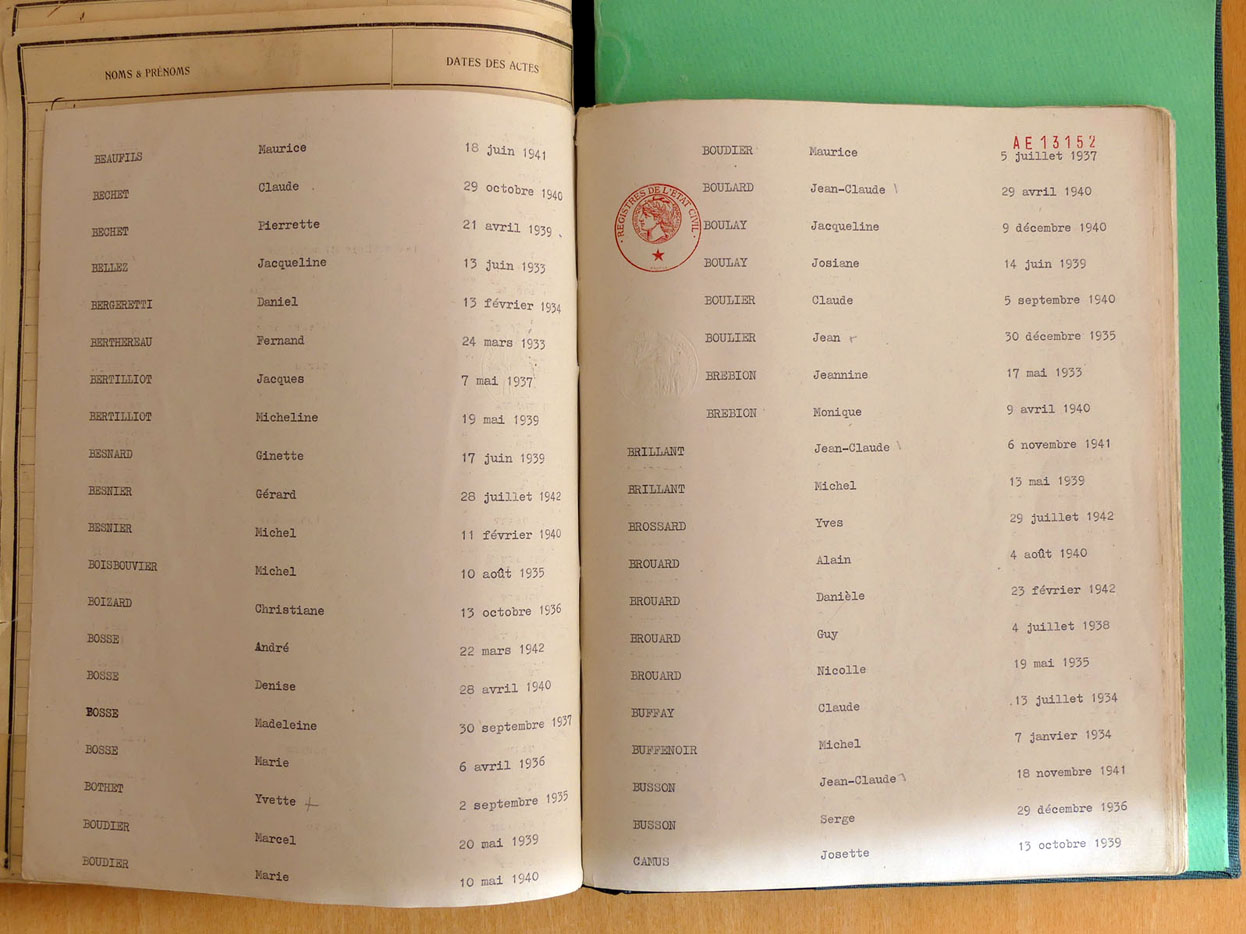 NOMS & PRÉNOMS DATES DES ACTES
BEAUFILS Maurice 18 juin 1941
BECHET Claude 29 octobre 1940
BECHET Pierrette 21 avril 1939
BELLEZ Jacqueline 13 juin 1933
BERGERETTI Daniel 13 février 1934
BERTHEREAU Fernand 24 mars 1933
BERTILLIOT Jacques 7 mai 1937
BERTILLIOT Micheline 19 mai 1939
BESNARD Ginette 17 juin 1939
BESNIER Gérard 28 juillet 1942
BESNIER Michel 11 février 1940
BOISBOUVIER Michel 10 août 1935
BOIZARD Christiane 13 octobre 1936
BOSSE André 22 mars 1942
BOSSE Denise 28 avril 1940
BOSSE Madeleine 30 septembre 1937
BOSSE Marie 6 avril 1936
BOTHET Yvette 2 septembre 1935
BOUDIER Marcel 20 mai 1939
BOUDIER Marie 10 mai 1940
AE 13152
BOUDIER Maurice 5 juillet 1937
BOULARD Jean-Claude 29 avril 1940
REGISTRES DE L'ÉTAT CIVIL
BOULAY Jacqueline 9 décembre 1940
BOULAY Josiane 14 juin 1939
BOULIER Claude 5 septembre 1940
BOULIER Jean 30 décembre 1935
BREBION Jeannine 17 mai 1933
BREBION Monique 9 avril 1940
BRILLANT Jean-Claude 6 novembre 1941
BRILLANT Michel 13 mai 1939
BROSSARD Yves 29 juillet 1942
BROUARD Alain 4 août 1940
BROUARD Danièle 23 février 1942
BROUARD Guy 4 juillet 1938
BROUARD Nicolle 19 mai 1935
BUFFAY Claude 13 juillet 1934
BUFFENOIR Michel 7 janvier 1934
BUSSON Jean-Claude 18 novembre 1941
BUSSON Serge 29 décembre 1936
CAMUS Josette 13 octobre 1939